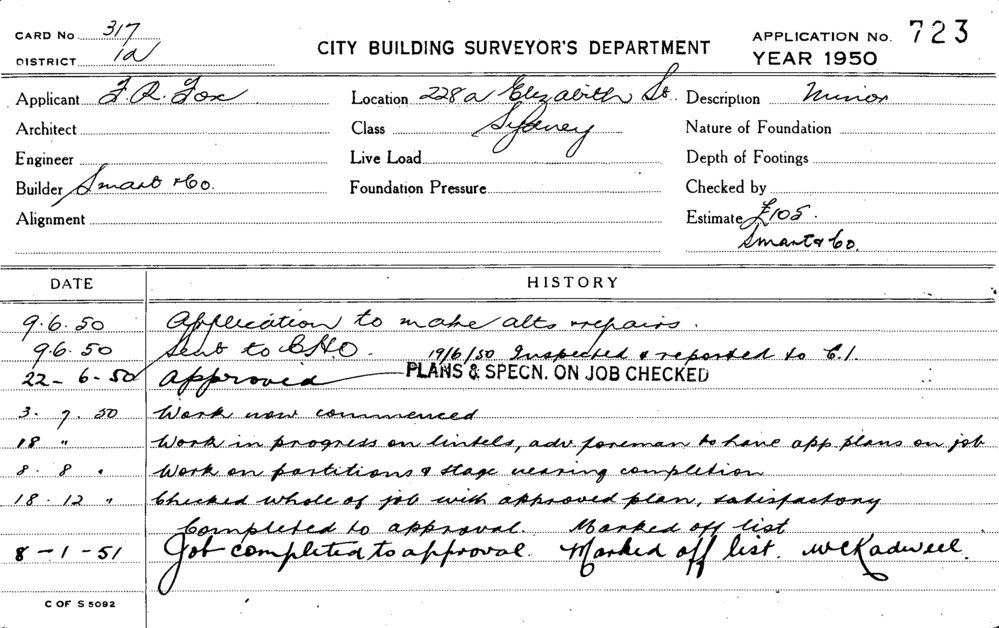 CARD No 317
DISTRICT 1a
CITY BUILDING SURVEYOR'S DEPARTMENT
APPLICATION No. 723
YEAR 1950
Applicant F. R. Fox
Location 228a Elizabeth St. Sydney
Description Minor
Architect
Class
Nature of Foundation
Engineer
Live Load
Depth of Footings
Builder Smart & Co.
Foundation Pressure
Checked by
Alignment
Estimate £105.
Smart & Co.
DATE HISTORY
9.6.50 Application to make alts & repairs.
9.6.50 Sent to CHO. 19/6/50 Inspected & reported to C.I.
22-6-50 Approved PLANS & SPECN. ON JOB CHECKED
3. 7. 50 Work now commenced
18 " Work in progress on lintels, adv foreman to have app plans on job
8. 8 " Work on partitions & stage nearing completion
18.12 " Checked whole of job with approved plan, satisfactory
Completed to approval. Marked off list
8-1-51 Job completed to approval. Marked off list.
C OF S 5092